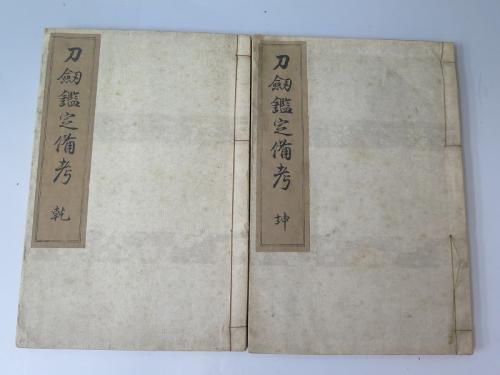 刀劔鑑定備考 乾
刀劔鑑定備考 坤